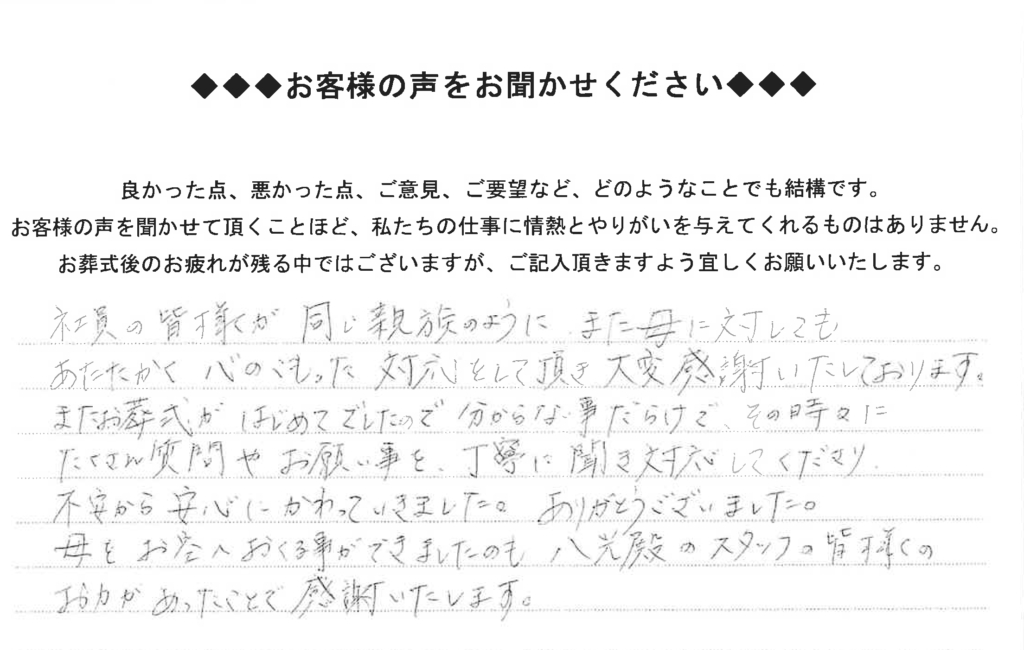 ◆◆◆お客様の声をお聞かせください◆◆◆
良かった点、悪かった点、ご意見、ご要望など、どのようなことでも結構です。
お客様の声を聞かせて頂くことほど、私たちの仕事に情熱とやりがいを与えてくれるものはありません。
お葬式後のお疲れが残る中ではございますが、ご記入頂きますよう宜しくお願いいたします。
社員の皆様が 同じ親族のように、また母に対しても
あたたかく 心のこもった 対応をして頂き 大変感謝いたしております。
またお葬式が はじめてでしたので 分からない事だらけで、その時々に
たくさん質問や お願い事を、丁寧に聞き対応してくださり、
不安から 安心にかわっていきました。 ありがとうございました。
母を お空へおくる事ができましたのも 八光殿のスタッフの皆様の
お力が あったことで感謝いたします。